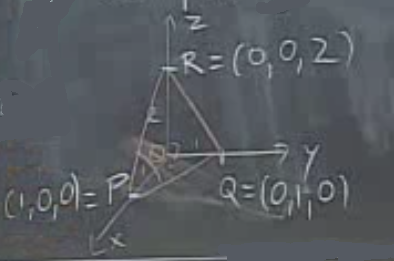 z
R=(0,0,2)
y
(1,0,0)=P
Q=(0,1,0)
x